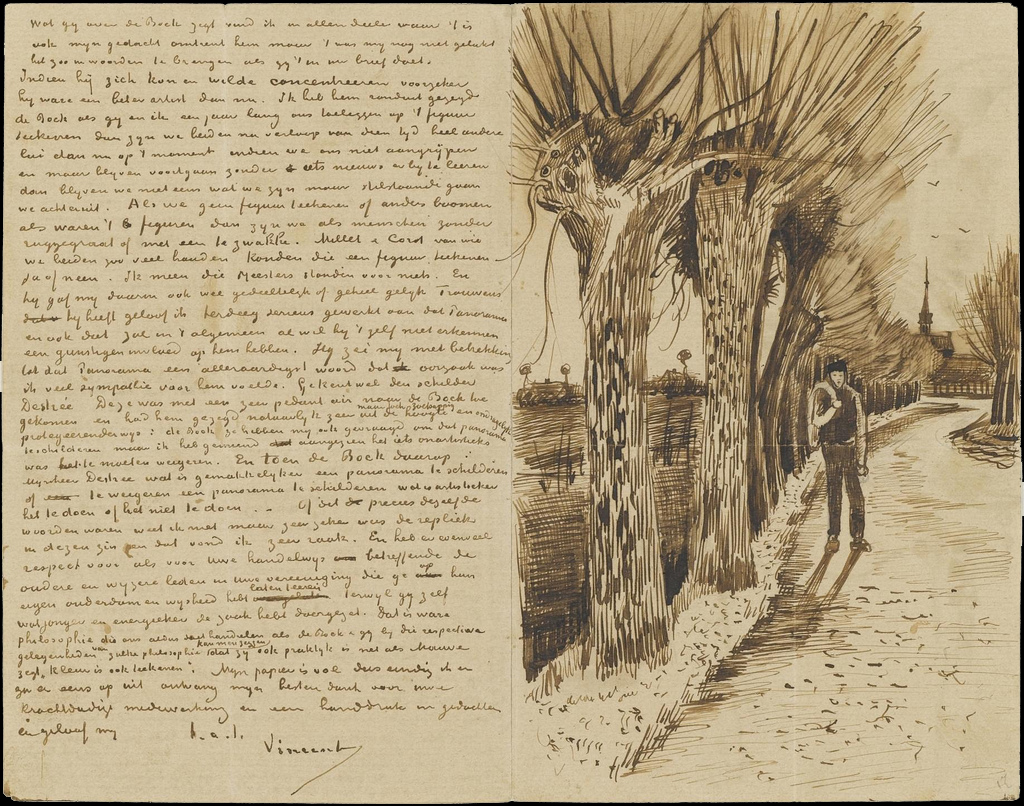 Wat gy over de Bock zegt vind ik in allen deele waar 't is
ook myn gedacht omtrent hem maar 't was my nog niet gelukt
het zoo in woorden te brengen als gy 't in uw brief doet.
Indien hij zich kon en wilde concentreeren voorzeker
hy ware een beter artist dan nu. Ik heb hem ronduit gezegd
de Bock als gy en ik een jaar lang ons toeleggen op 't figuur
teekenen dan zyn we beiden na verloop van dien tyd heel andere
lui dan nu op 't moment indien we ons niet aangrijpen
en maar blyven voortgaan zonder iets nieuws erby te leeren
dan blyven we niet eens wat we zyn maar stilstaande gaan
we achteruit. Als we geen figuur teekenen of anders boomen
als waren 't figuren dan zyn we als menschen zonder
ruggegraat of met een te zwakke. Millet & Corot van wie
we beiden zoo veel houden konden die een figuur teekenen
Ja of neen. Ik meen die Meesters stonden voor niets. En
hy gaf my daarin ook wee gedeeltelijk of geheel gelijk Trouwens
hy heeft geloof ik terdeeg serieus gewerkt aan dat Panorama
en ook dat zal in 't algemeen al wil hy 't zelf niet erkennen
een gunstigen invloed op hem hebben. Hy zei my met betrekking
tot dat Panorama een alleraardigst woord dat oorzaak was
ik veel sympathie voor hem voelde. Gy kent wel den schilder
Destrée Deze was met een zeer pedant air naar de Bock toe
gekomen en had hem gezegd natuurlyk zeer uit de hoogte en
protegeerenderwys: de Bock ze hebben my ook gevraagd om dat panorama
te schilderen maar ik heb gemeend aangezien het iets onartistieks
was het te moeten weigeren. En toen de Bock daarop:
mynheer Destrée wat is gemakkelyker een panorama te schilderen
of te weigeren een panorama te schilderen wat is artistieker
het te doen of het niet te doen. .. Of dit precies dezelfde
woorden waren weet ik niet maar zeer zeker was de repliek
in dezen zin en dat vond ik zeer raak. En heb er evenveel
respect voor als voor uwe handelwys betreffende de
oudere en wyzere leden in uwe vereeniging die ge aan hun
eigen ouderdom en wysheid hebt laten terwyl gy zelf
wat jonger en energieker de zaak hebt doorgezet. Dat is ware
philosophie die ons aldus doet handelen als de Bock & gy by die respectieve
gelegenheden van zulke philosophie kan men zeggen dat zy ook praktyk is net als Mauve
zegt „kleur is ook teekenen". Myn papier is vol dus eindig ik en
ga er eens op uit ontvang myn besten dank voor uwe
krachtdadige medewerking en een handdruk in gedachten
en geloof my t.a.t.
Vincent